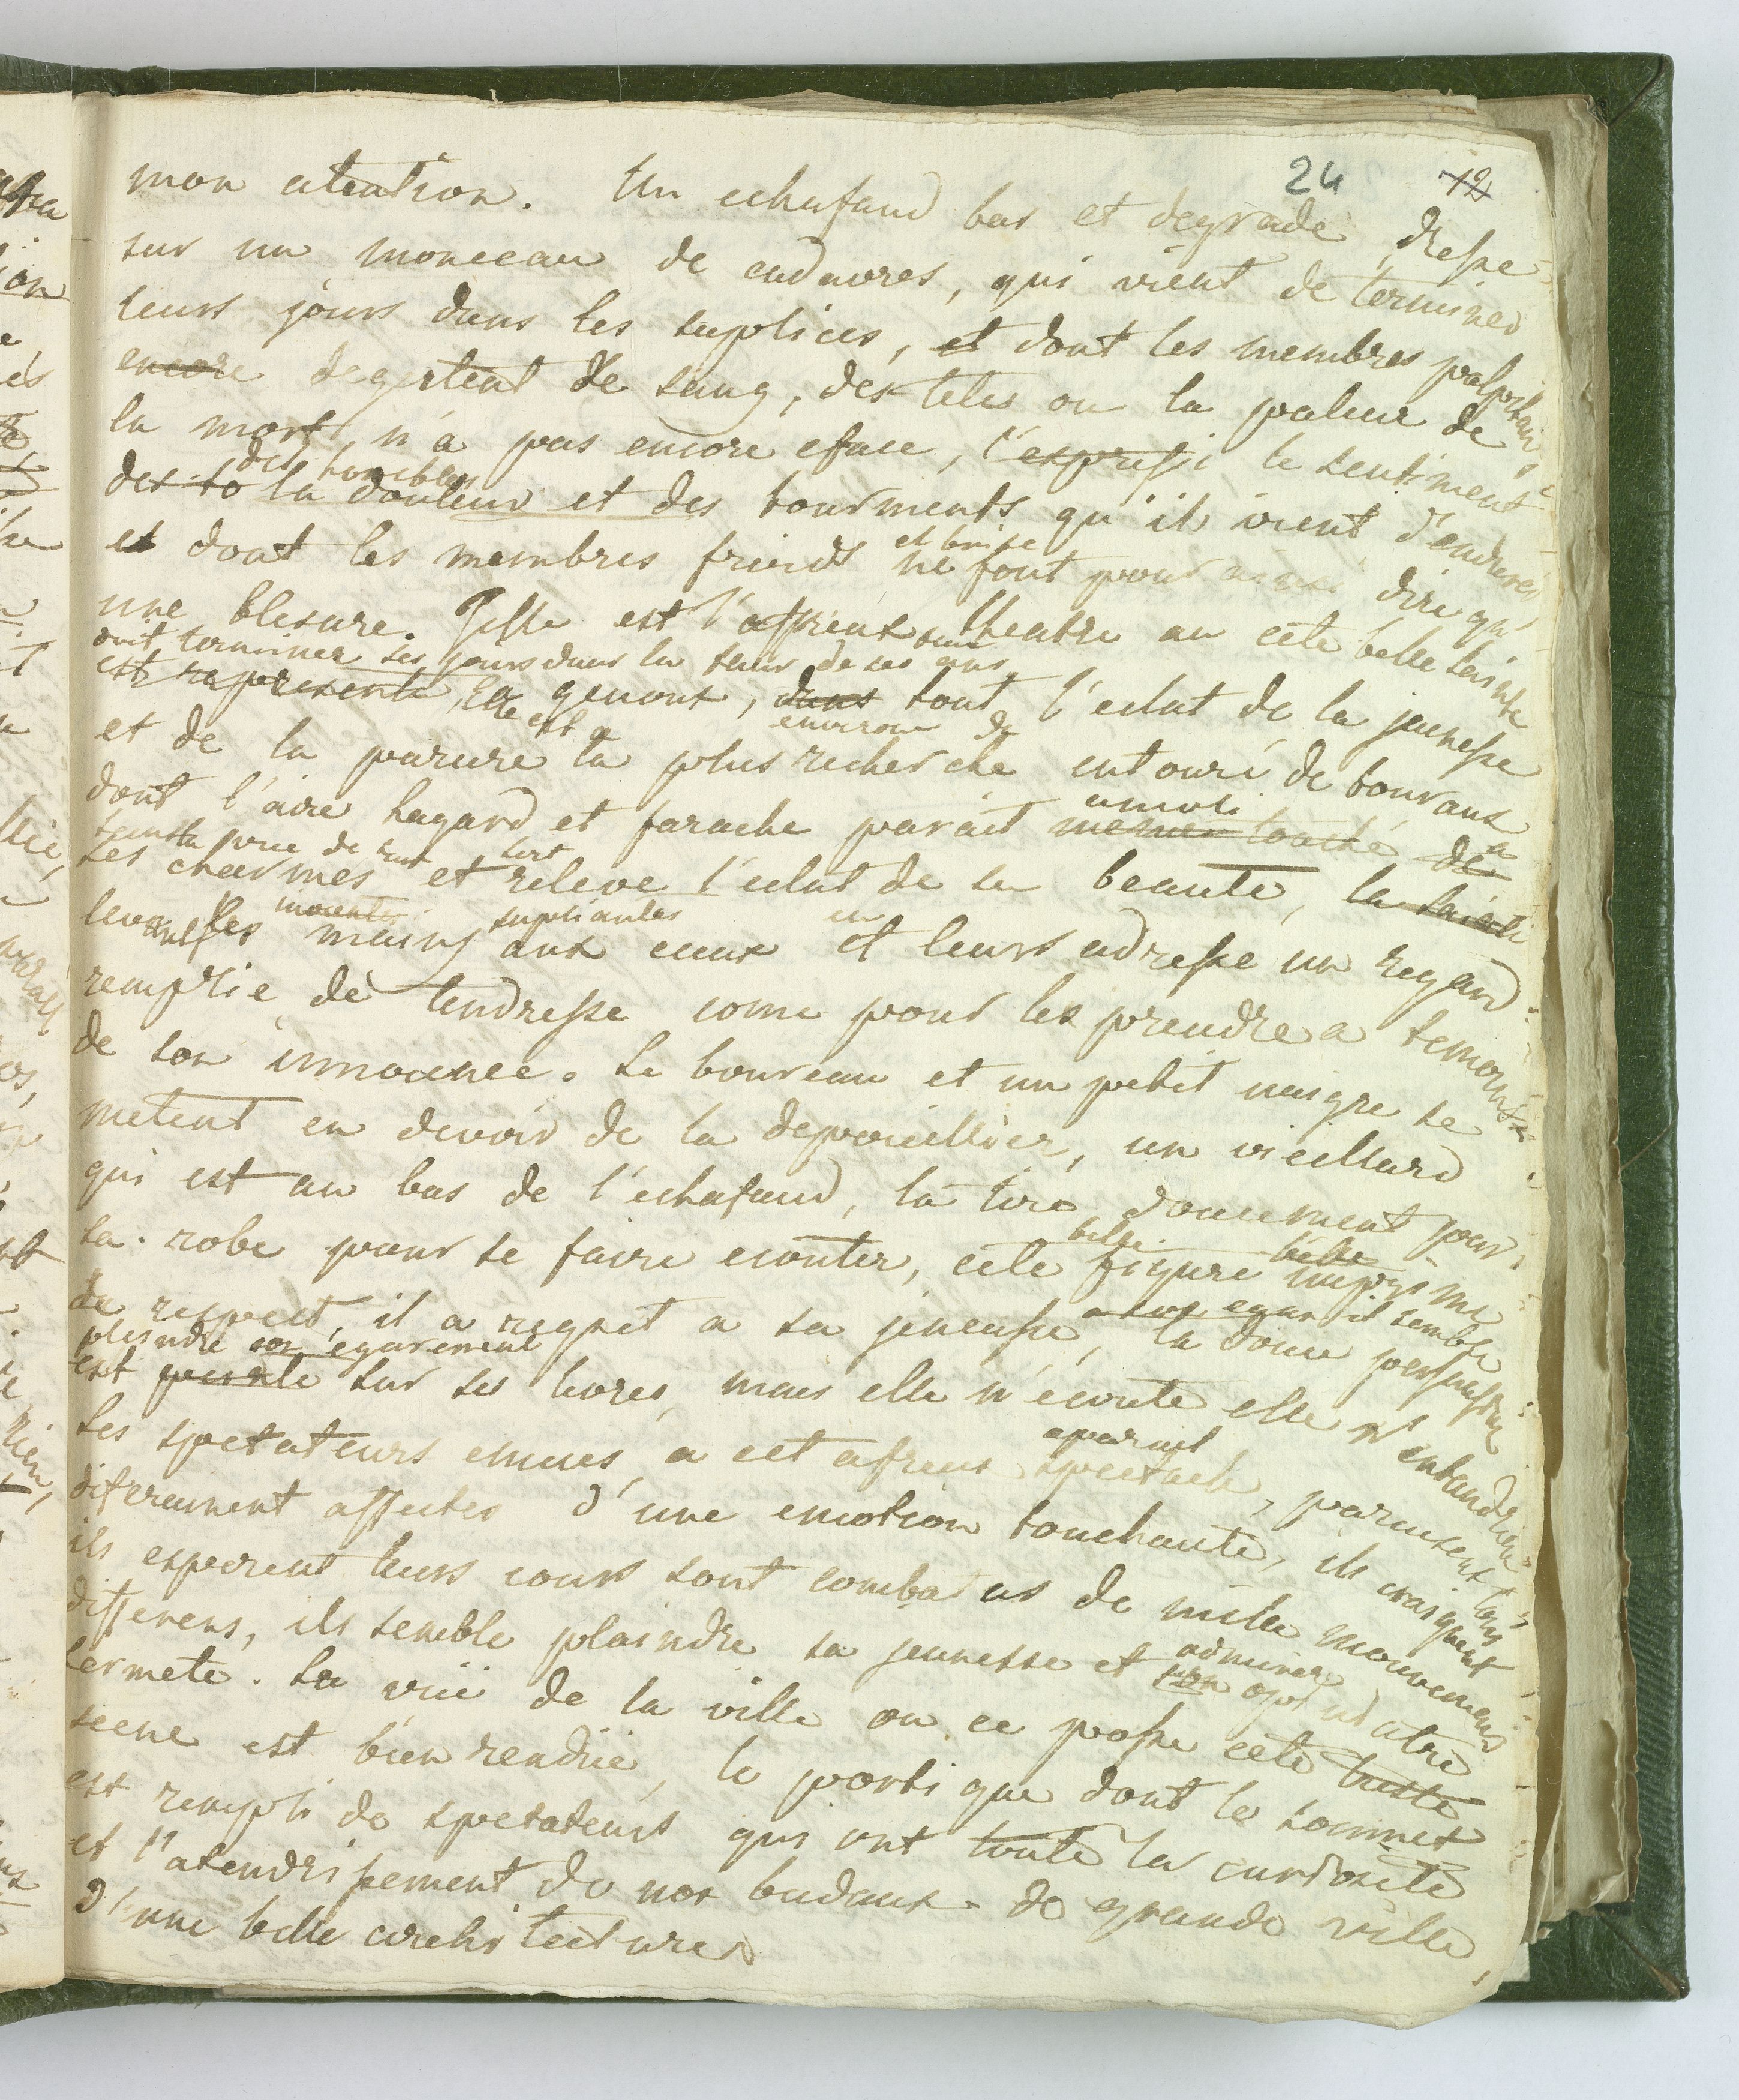 24 12
mon atention. Un echafaud bas et degradé, dressé
sur un monceau de cadavres, qui vient de terminer
leurs jours dans les suplices, et dont les membres palpitans
encore degoutent de sang, des tetes ou la paleur de
la mort, n'a pas encore eface, l'expressi le sentiment
des horibles
des to la douleur et des tourments qu'il vient d'endurer
et brise
et dont les membres froids ne font pour ainsi dire qu'
une blesure. Telle est l'affreux theatre au cete belle sainte
vient terminer ses jours dans la fleur de ses ans
est representé, Elle est a genoux, dans tout l'eclat de la jeunesse
environé de
et de la parure la plus recherche entouré de bouraux
amoli
dont l'aire hagard et farache parait mesme touché de
ses charmes et releve l'eclat de sa beauté, la sainte
mourante supliantes
leve ses mains aux cieux et leurs adresse un regard
remplie de tendresse come pour les prendre a temoins
de son innocence. Le boureau et un petit naigre se
metent en devoir de la depoueillier, un vieillard
qui est au bas de l'echafaud, la tire doucement par
belle belle
sa robe pour se faire ecouter, cete figure imprime
de respect, il a regret a sa jeneusse, il semble
plaindre son egarement la douce persuasion
est peinte sur ses levres, mais elle n'ecoute elle n'entand rien
aparast
Les spetateurs emues a cet afreux spectacle, paraisent tous
diferament affectes d'une emotion touchante, ils craignent
ils esperent leurs cours sont combatus de mille mouvemens
differens, ils semble plaindre sa jeunesse et admirer son
fermete. La vüe de la ville ou ce passe cete triste
scene est bien rendüe, le portique dont le sommet
est rempli de spetateurs qui ont toute la curiosite
et l'atendrissement de nos badaux de grande ville,
d'une belle architecture